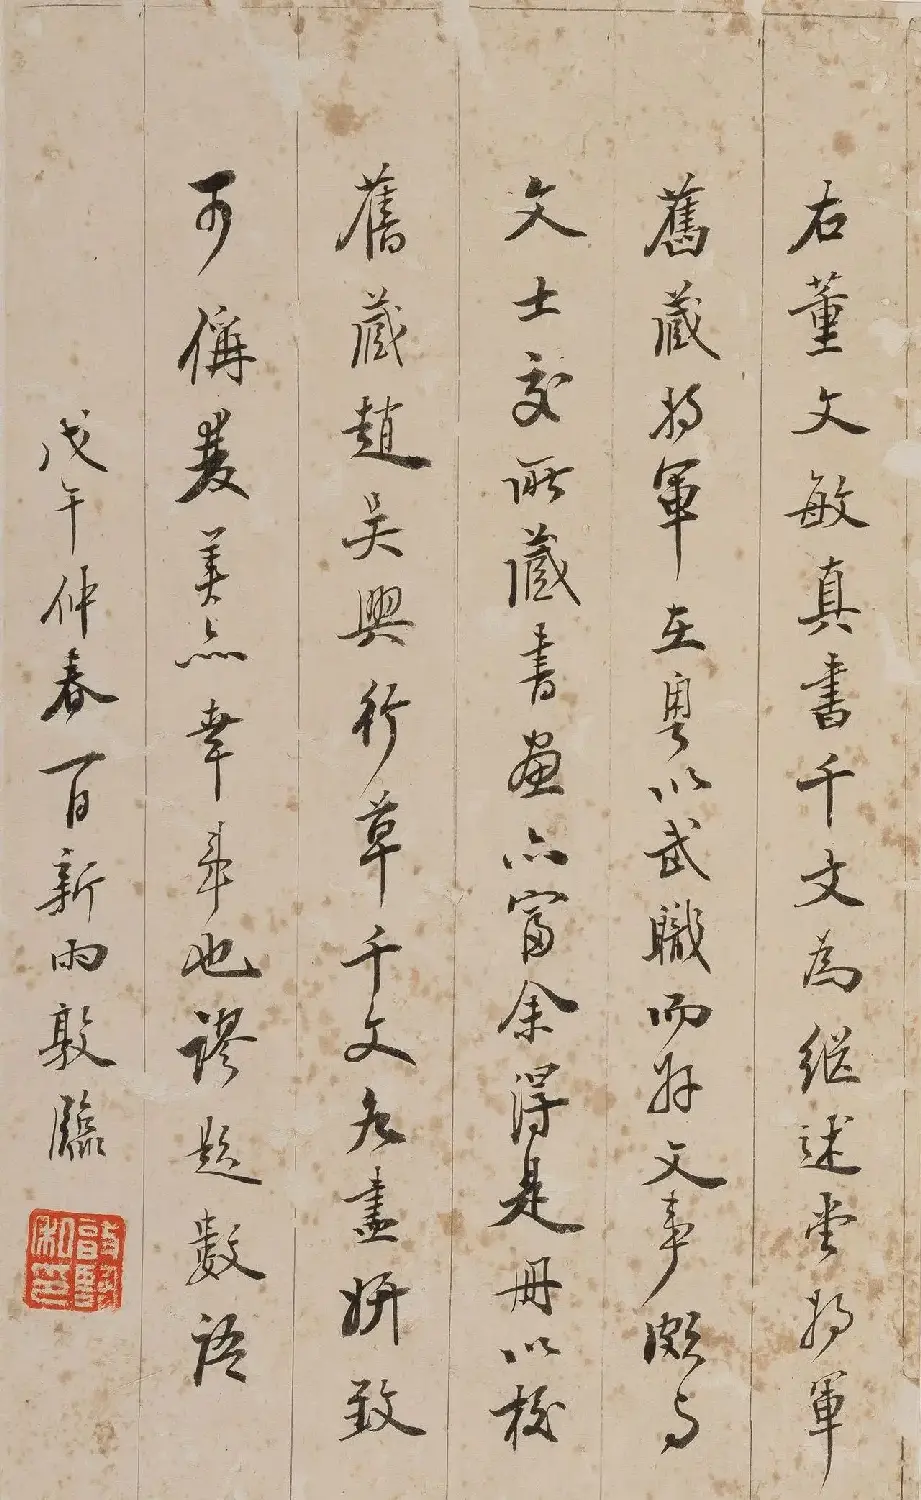 右董文敏真書千文為繼述堂將軍
舊藏將軍在粵以武職而好文事頗與
文士交所藏書畫亦富余得是冊以校
舊藏趙吳興行草千文各盡妍致
可稱雙美亦幸事也謬題數語
戊午仲春百新雨敦臨